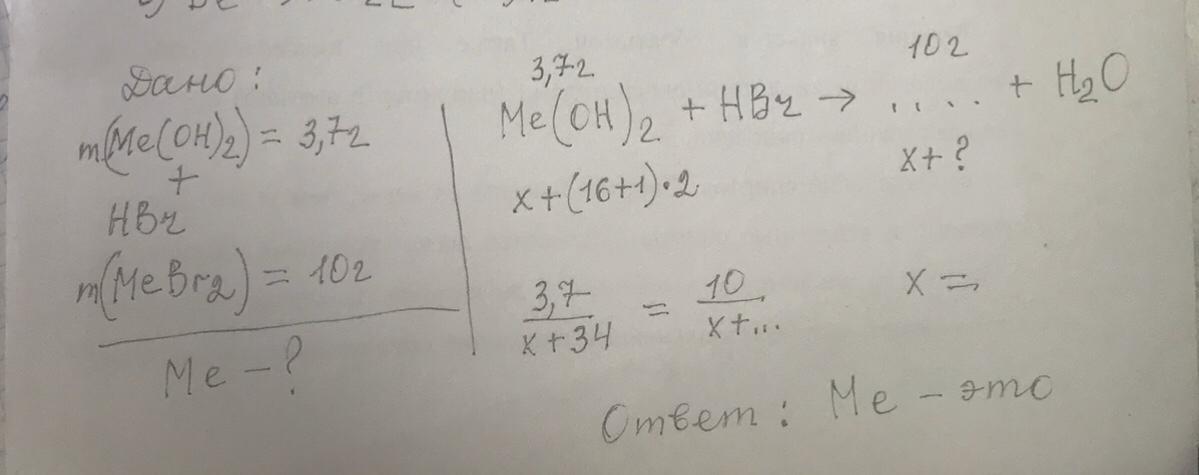 Дано:
m(Me(OH)₂) = 3,7г
+
HBr
m(MeBr₂) = 10г
Me – ?
3,7г 10г
Me(OH)₂ + HBr → ..... + H₂O
x+(16+1)·2 x+?
3,7/x+34 = 10/x+... x =
Ответ: Me – это